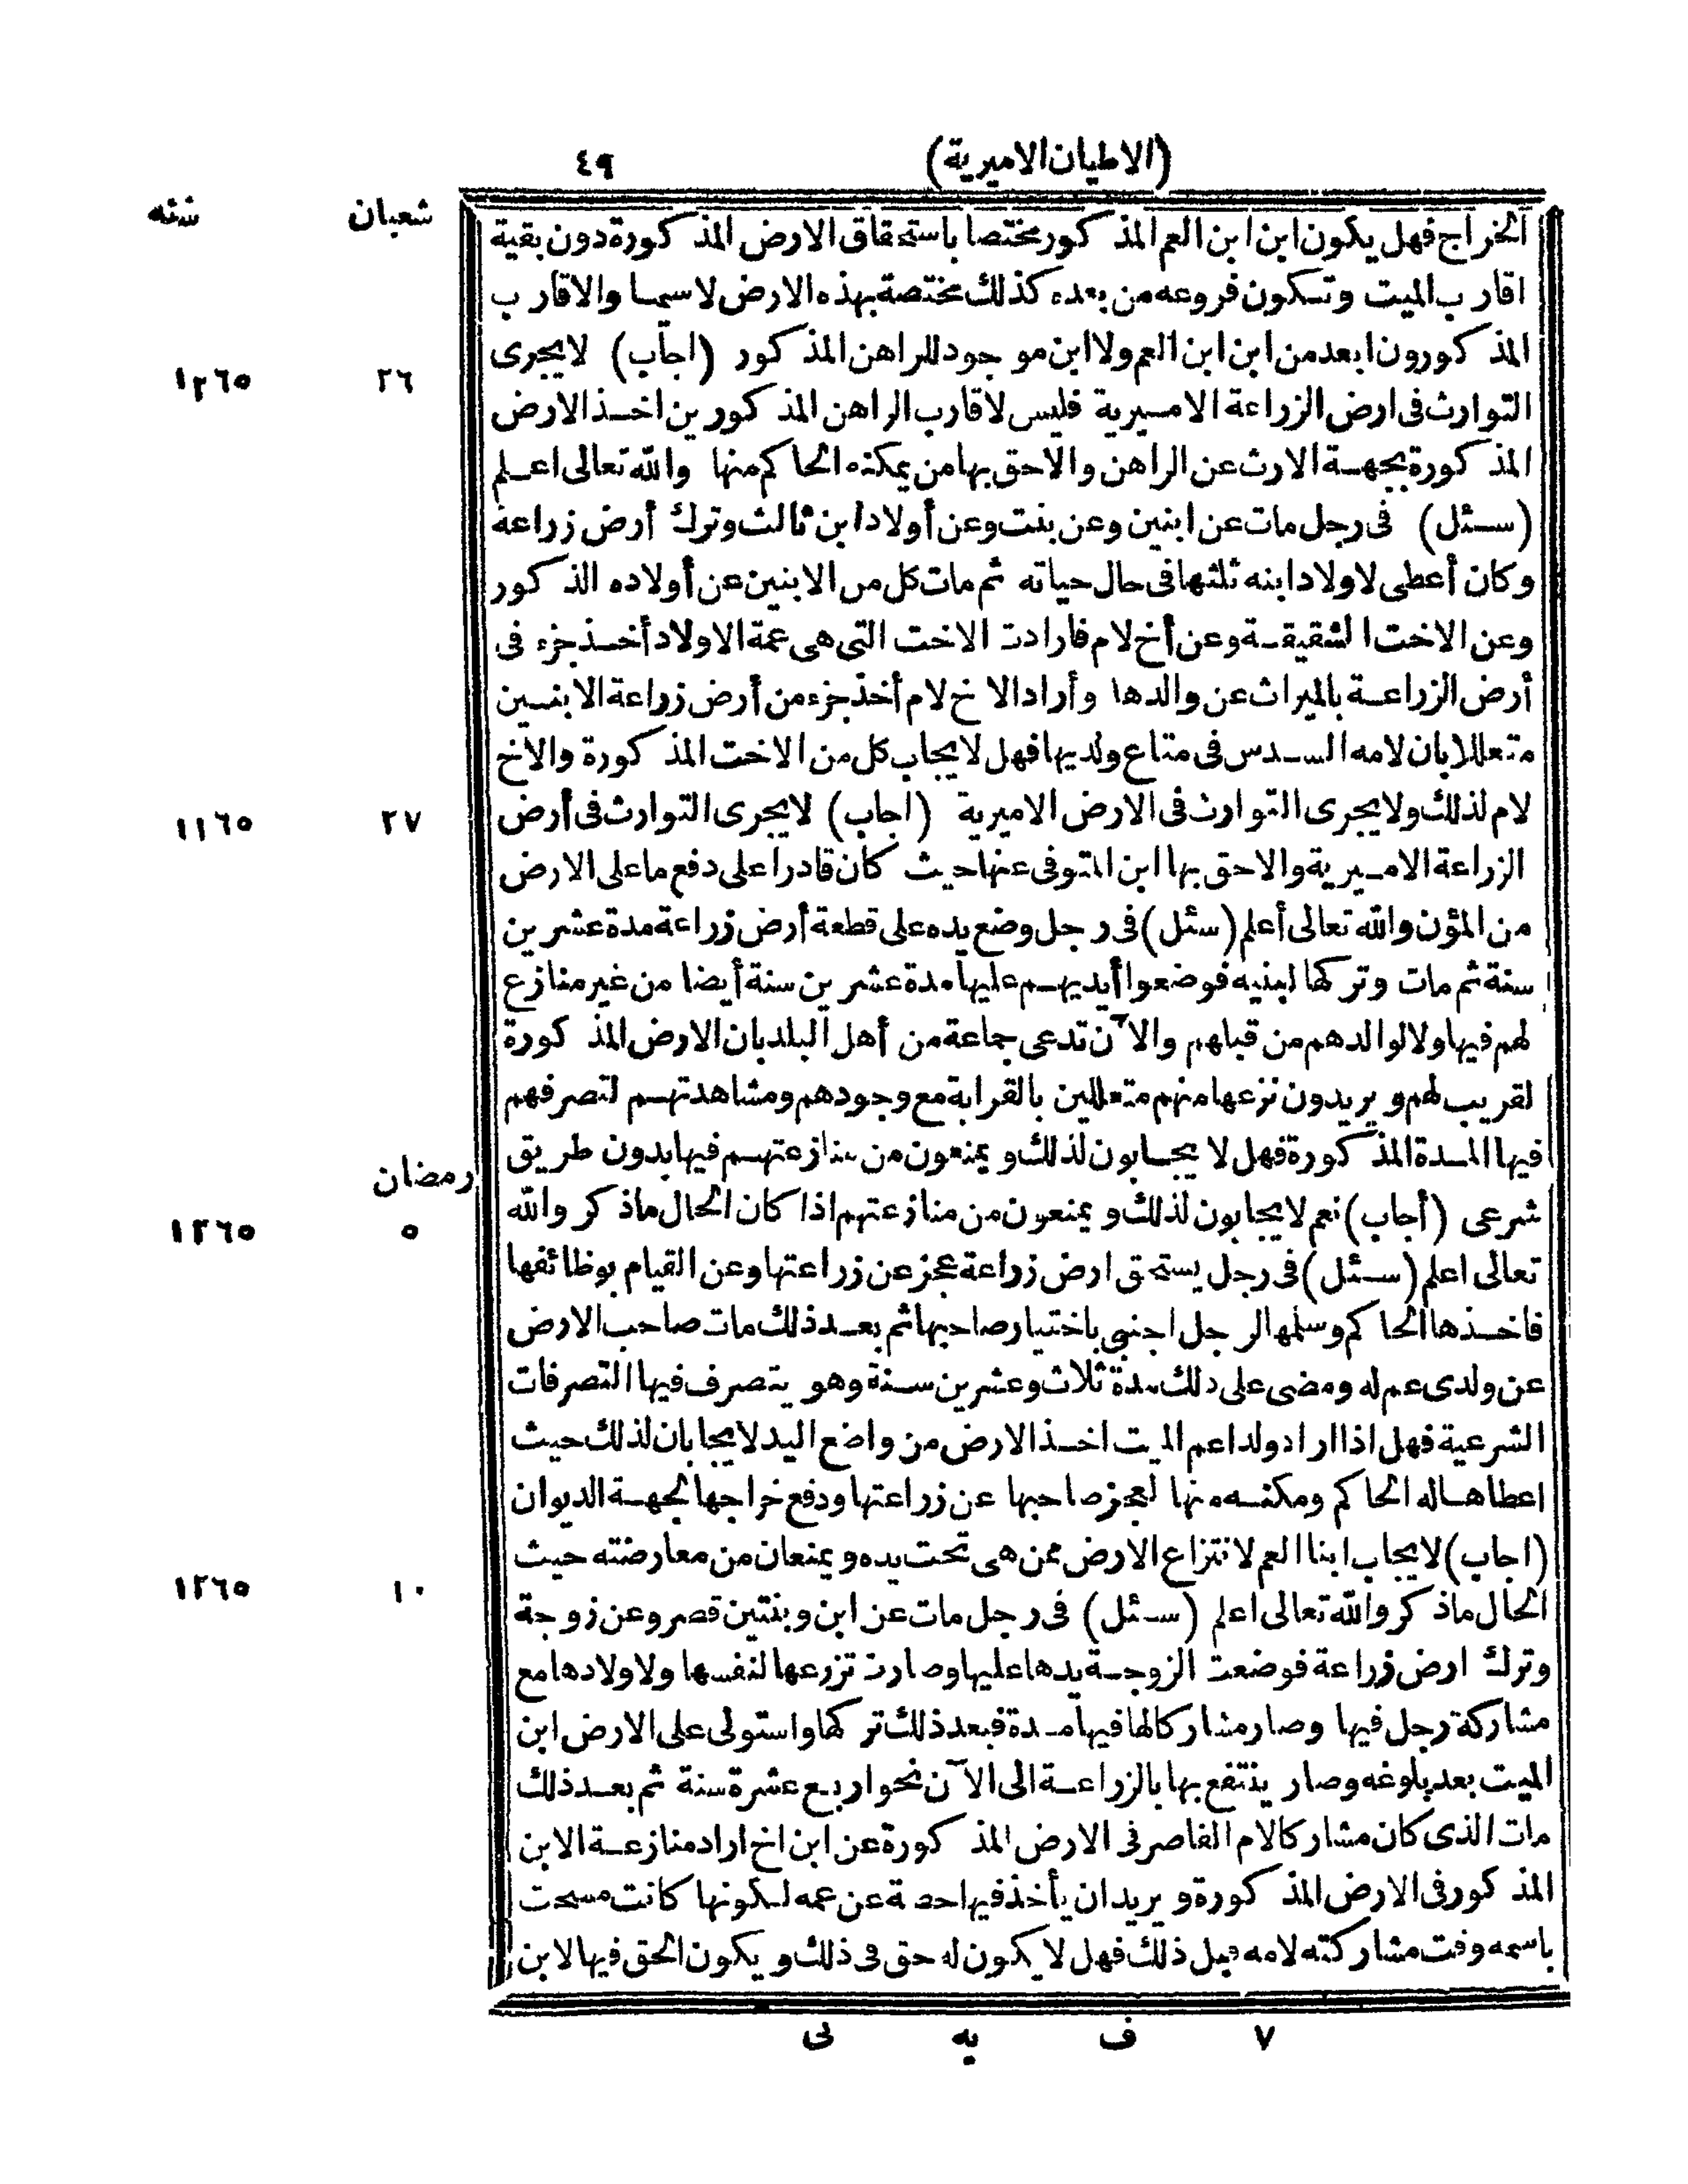 (الاطيان الاميرية) ٤٩
شعبان سنة
الخراج فهل يكون ابن ابن العم المذكور مختصا باستحقاق الارض المذكورة دون بقية
اقارب الميت وتكون فروعه من بعده كذلك مختصة بهذه الارض لاسيما والاقارب
المذكورون ابعد من ابن ابن العم ولا ابن موجود للراهن المذكور (اجاب) لا يجرى
٢٦ ١٢٦٥
التوارث فى ارض الزراعة الاميرية فليس لاقارب الراهن المذكورين اخذ الارض
المذكورة بجهة الارث عن الراهن والاحق بها من يمكنه الحاكم منها والله تعالى اعلم
(سئل) فى رجل مات عن ابنين وعن بنت وعن أولاد ابن ثالث وترك أرض زراعة
وكان أعطى لاولاد ابنه ثلثها فى حال حياته ثم مات كل من الابنين عن أولاده الذكور
وعن الاخت الشقيقة وعن أخ لام فارادت الاخت التى هى عمة الاولاد أخذ جزء فى
أرض الزراعة بالميراث عن والدها وأراد الاخ لام أخذ جزء من أرض زراعة الابنين
متعللا بان لامه السدس فى متاع ولديها فهل لا يجاب كل من الاخت المذكورة والاخ
لام لذلك ولا يجرى التوارث فى الارض الاميرية (اجاب) لا يجرى التوارث فى أرض
٢٧ ١٢٦٥
الزراعة الاميرية والاحق بها ابن المتوفى عنها حيث كان قادرا على دفع ما على الارض
من المؤن والله تعالى أعلم (سئل) فى رجل وضع يده على قطعة أرض زراعة مدة عشرين
سنة ثم مات وتركها لبنيه فوضعوا أيديهم عليها مدة عشرين سنة أيضا من غير منازع
لهم فيها ولا لوالدهم من قبلهم والآن تدعى جماعة من أهل البلد بان الارض المذكورة
لقريب لهم ويريدون نزعها منهم متعللين بالقرابة مع وجودهم ومشاهدتهم لتصرفهم
فيها المدة المذكورة فهل لا يجابون لذلك ويمنعون من منازعتهم فيها بدون طريق
رمضان
شرعى (أجاب) نعم لا يجابون لذلك ويمنعون من منازعتهم اذا كان الحال ماذكر والله
٥ ١٢٦٥
تعالى اعلم (سئل) فى رجل يستحق ارض زراعة عجز عن زراعتها وعن القيام بوظائفها
فاخذها الحاكم وسلمها لرجل اجنبى باختيار صاحبها ثم بعد ذلك مات صاحب الارض
عن ولدى عم له ومضى على ذلك مدة ثلاث وعشرين سنة وهو يتصرف فيها التصرفات
الشرعية فهل اذا اراد ولدا عم الميت اخذ الارض من واضع اليد لا يجابان لذلك حيث
اعطاها له الحاكم ومكنه منها لعجز صاحبها عن زراعتها ودفع خراجها لجهة الديوان
(اجاب) لا يجاب ابنا العم لانتزاع الارض ممن هى تحت يده ويمنعان من معارضته حيث
١٠ ١٢٦٥
الحال ماذكر والله تعالى اعلم (سئل) فى رجل مات عن ابن وبنتين قصر وعن زوجة
وترك ارض زراعة فوضعت الزوجة يدها عليها وصارت تزرعها لنفسها ولاولادها مع
مشاركة رجل فيها وصار مشاركا لها فيها مدة فبعد ذلك تركها واستولى على الارض ابن
الميت بعد بلوغه وصار ينتفع بها بالزراعة الى الآن نحو اربع عشرة سنة ثم بعد ذلك
مات الذى كان مشاركا لام القاصر فى الارض المذكورة عن ابن اخ اراد منازعة الابن
المذكور فى الارض المذكورة ويريد ان يأخذ فيها حصة عن عمه لكونها كانت مسحت
باسمه وقت مشاركته لامه قبل ذلك فهل لا يكون له حق فى ذلك ويكون الحق فيها لابن
٧ ف يه نى